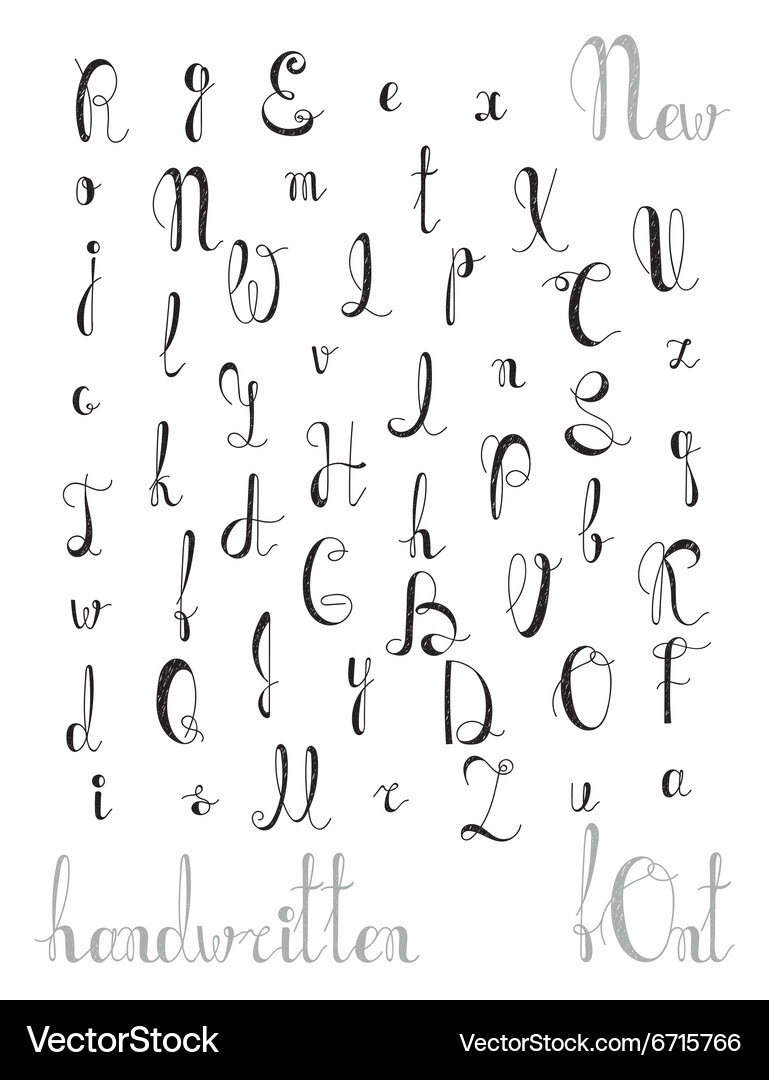 R g E e x New
o N m t X U
j W I p C
l v n z
c Y L S
k H P q
T A h b
w f G B V K
d Q J y D O F
i s M r Z u a
handwritten fOnt
VectorStock VectorStock.com/6715766